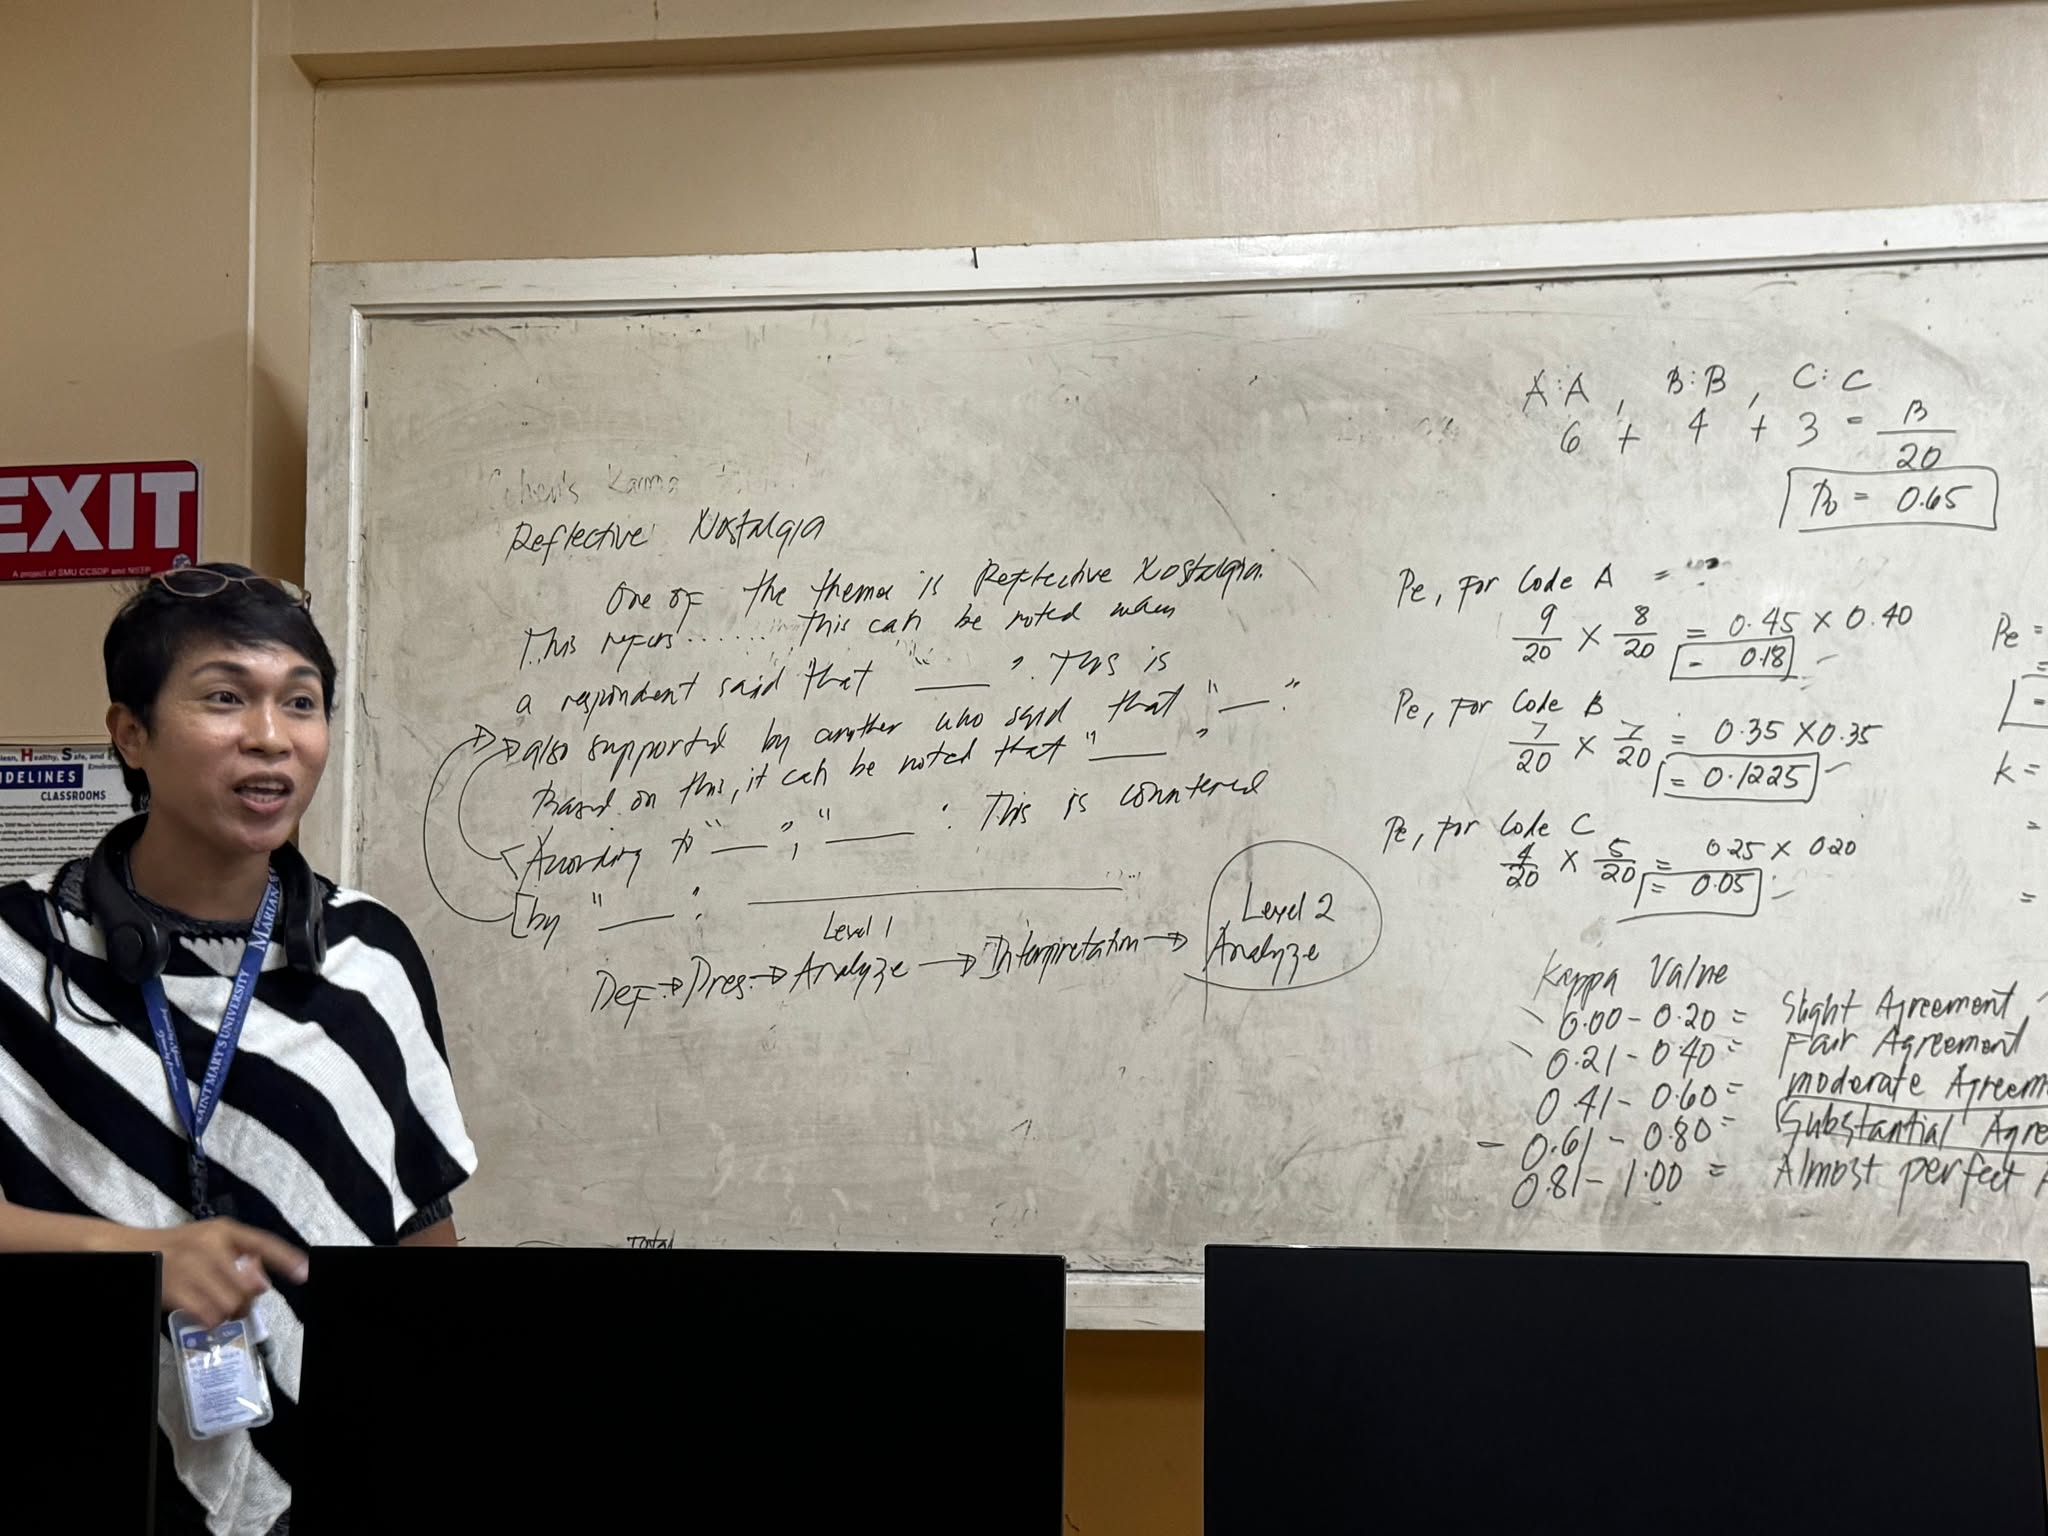 EXIT
A project of SMU CCSDP and NSTP
lean, Healthy, Safe, and
IDELINES
CLASSROOMS
MARIAN
SAINT MARY'S UNIVERSITY
Cohen's Karma
Reflective Nostalgia
One of the theme is Reflective Nostalgia.
This refers...... This can be noted when
a respondent said that ____". This is
also supported by another who said that "__".
Based on this, it can be noted that "____"
According to "__", "____". This is countered
by "____".
Level 1
Def. → Pres. → Analyze → Interpretation → Level 2
Analyze
Total
A:A, B:B, C:C
6 + 4 + 3 = 13
20
Po = 0.65
Pe, for Code A =
9/20 × 8/20 = 0.45 × 0.40
= 0.18
Pe, for Code B
7/20 × 7/20 = 0.35 × 0.35
= 0.1225
Pe, for Code C
4/20 × 5/20 = 0.25 × 0.20
= 0.05
Pe =
=
k =
=
=
Kappa Value
0.00 - 0.20 = Slight Agreement
0.21 - 0.40 = Fair Agreement
0.41 - 0.60 = moderate Agreem
- 0.61 - 0.80 = Substantial Agre
0.81 - 1.00 = Almost perfect A